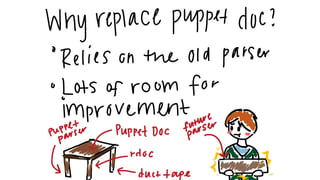 Why replace puppet doc?
• Relies on the old parser
• Lots of room for
improvement
puppet
parser
Puppet Doc
rdoc
duct tape
future
parser